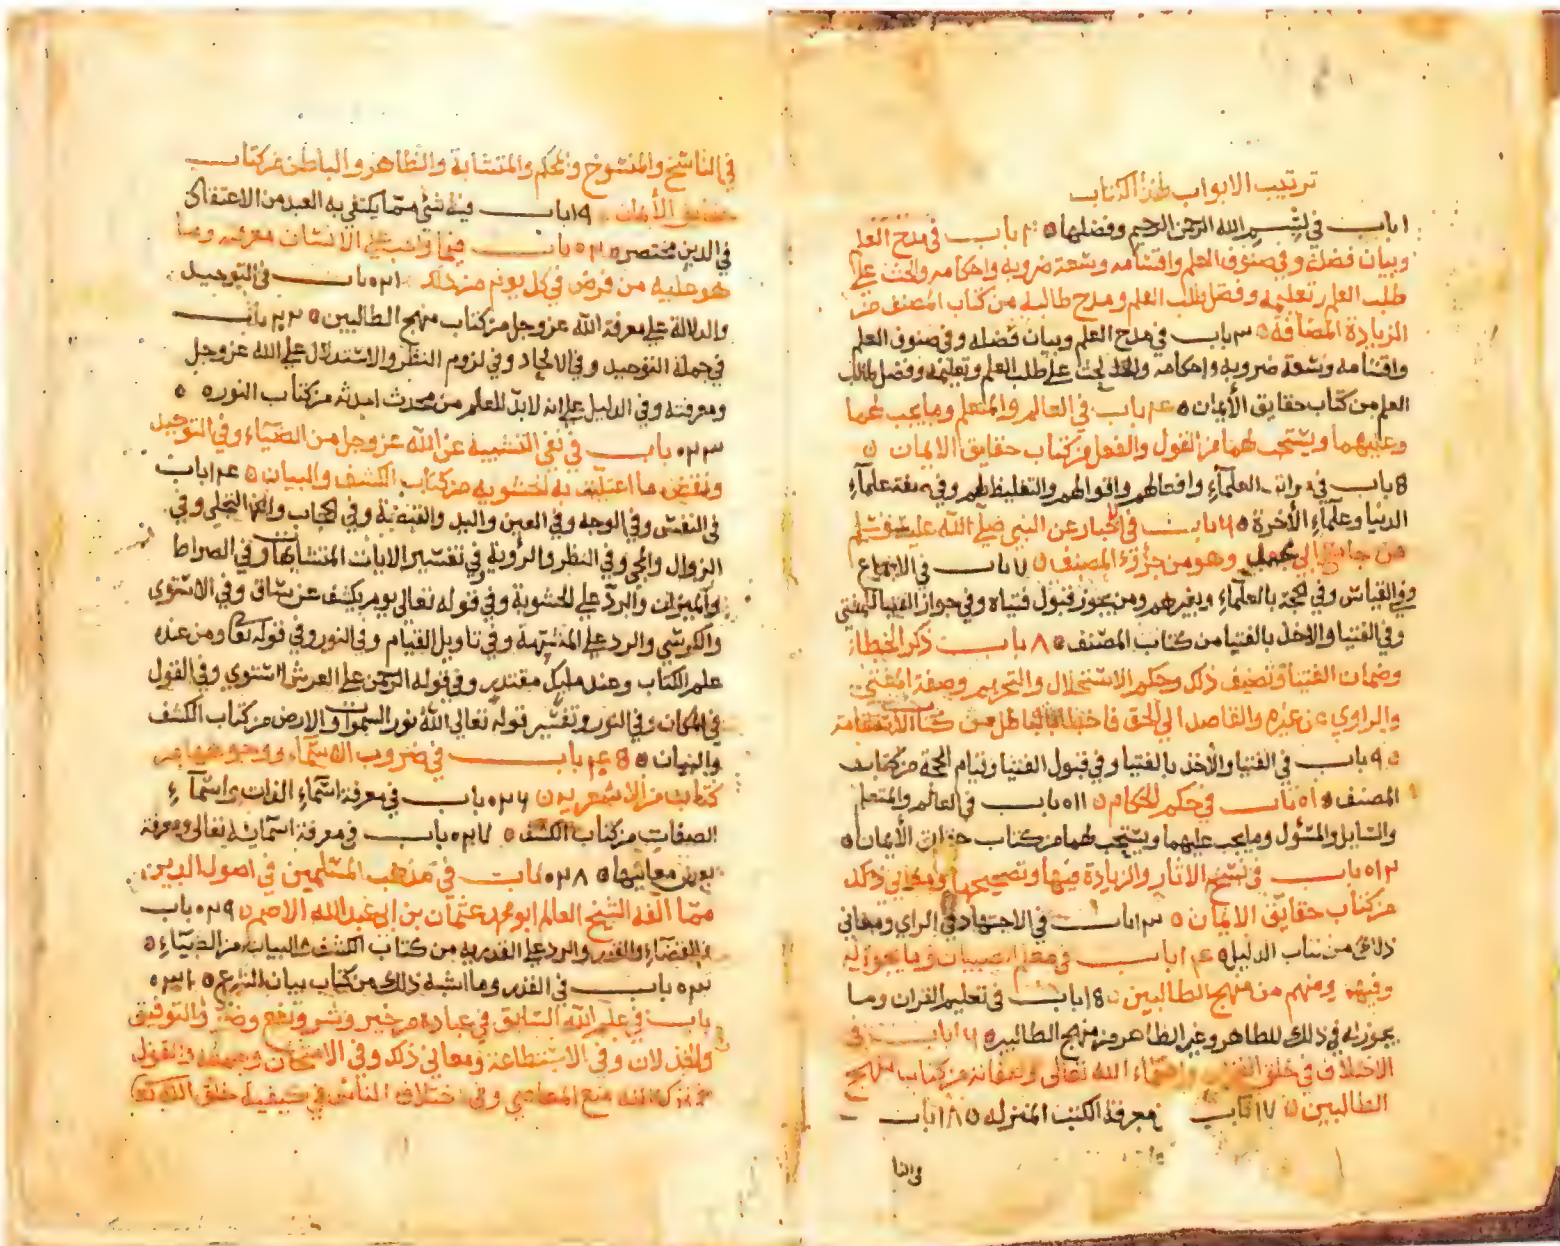 ترتيب الابواب لهذا الكتاب
١ باب في بسم الله الرحمن الرحيم وفضلها ٥ ٢ باب في مدح العلم
وبيان فضله وفي صنوف العلم واقسامه وسعة ضروبه واحكامه والحث على
طلب العلم وتعليمه وفضل طلب العلم ومدح طالبه من كتاب المصنف من
الزيادة المضافة ٥ ٣ باب في مدح العلم وبيان فضله وفي صنوف العلم
واقسامه وسعة ضروبه واحكامه والحث على طلب العلم وتعليمه وفضل طالب
العلم من كتاب حقايق الأيمان ٥ ٤ باب في العالم والمتعلم وما يجب لهما
وعليهما ويستحب لهما من القول والفعل من كتاب حقايق الايمان ٥
٥ باب في العلمآء وافعالهم واقوالهم والتغليظ لهم وفي صفة علمآء
الدنيا وعلمآء الأخرة ٥ ٦ باب في اخبار عن النبي صلى الله عليه وسلم
من جامع ابي وهو من جزؤ المصنف ٥ ٧ باب في الاجماع
وفي القياس وفي الحجة بالعلمآء وبغيرهم ومن يجوز قبول فتياه وفي جواز الفتيا للمفتي
وفي الفتيا والاخذ بالفتيا من كتاب المصنف ٥ ٨ باب ذكر الخطاء
وضمان الفتيا وتضعيف ذلك وحكم الاستحلال والتحريم وصفة المفتي
والراوي عن غيره والقاصد الى الحق فاخطا بالباطل من كتاب الاستقامة
٥ ٩ باب في الفتيا والأخذ بالفتيا وفي قبول الفتيا وقيام الحجة من كتاب
المصنف ٥ ١٠ باب في حكم الحكام ٥ ١١ باب في العالم والمتعلم
والسايل والمسؤل وما يجب عليهما ويستحب لهما من كتاب حقايق الأيمان ٥
١٢ باب في نسخ الاثار والزيادة فيها وتصحيحها ومعاني ذلك
من كتاب حقايق الايمان ٥ ١٣ باب في الاجتهاد في الراي ومعاني
ذلك من كتاب الدليل ٥ ١٤ باب في معلم الصبيان وما يجوز له
وفيهم ومنهم من منهج الطالبين ٥ ١٥ باب في تعليم القران وما
يجوز له في ذلك للطاهر وغير الطاهر من منهج الطالبين ٥ ١٦ باب في
الاختلاف في خلق القرآن واسمآء الله تعالى وصفاته من كتاب منهج
الطالبين ٥ ١٧ باب في معرفة الكتب المنزله ٥ ١٨ باب
في النا
في الناسخ والمنسوخ والمحكم والمتشابه والظاهر والباطن من كتاب
حقايق الأيمان ١٩ باب فيه شئ مما يكتفي به العبد من الاعتقاد
في الدين مختصر ٥ ٢٠ باب فيما واجب على الانسان معرفته وما
هو عليه من فرض في كل يوم من ذلك ٢١ باب في التوحيد
والدلالة على معرفة الله عز وجل من كتاب منهج الطالبين ٥ ٢٢ باب
في جملة التوحيد وفي الالحاد وفي لزوم النظر والاستدلال على الله عز وجل
ومعرفته وفي الدليل على انه لا بد للعلم من محدث احدثه من كتاب النور ٥
٢٣ باب في نفي التشبيه عن الله عز وجل من الضياء وفي التوحيد
ونقض ما اعتلت به الحشوية من كتاب الكشف والبيان ٥ ٢٤ باب
في النفس وفي الوجه وفي العين واليد والقبضة وفي الحجاب وفي التجلي وفي
الزوال والمجئ وفي النظر والرؤية في تفسير الايات المتشابهات وفي الصراط
والميزان والرد على الحشوية وفي قوله تعالى يوم يكشف عن ساق وفي الاستوى
والكرسي والرد على المشبهة وفي تاويل القيام وفي النور وفي قوله تعا ومن عنده
علم الكتاب وعند مليك مقتدر وفي قوله الرحمن على العرش استوي وفي القول
في المكان وفي النور وتفسير قوله تعالى الله نور السموات والارض من كتاب الكشف
والبيان ٥ ٢٥ باب في ضروب الاسمآء
كتاب من الاشعرية ٥ ٢٦ باب في معرفة اسمآء الذات واسمآء
الصفات من كتاب الكشف ٥ ٢٧ باب في معرفة اسمائه تعالى ومعرفة
بعض معانيها ٥ ٢٨ باب في مذهب المسلمين في اصول الدين
مما الفه الشيخ العالم ابو محمد عثمان بن ابي عبد الله الاصم ٥ ٢٩ باب
في القضآء والقدر والرد على القدرية من كتاب الكشف والبيان من الضيآء ٥
٣٠ باب في القدر وما اشبه ذلك من كتاب بيان الشرع ٥ ٣١
باب في علم الله السابق في عباده من خير وشر ونفع وضر والتوفيق
والخذلان وفي الاستطاعة ومعاني ذلك وفي الامتحان وفي القول
منع المعاصي وفي اختلاف الناس في خلق الله